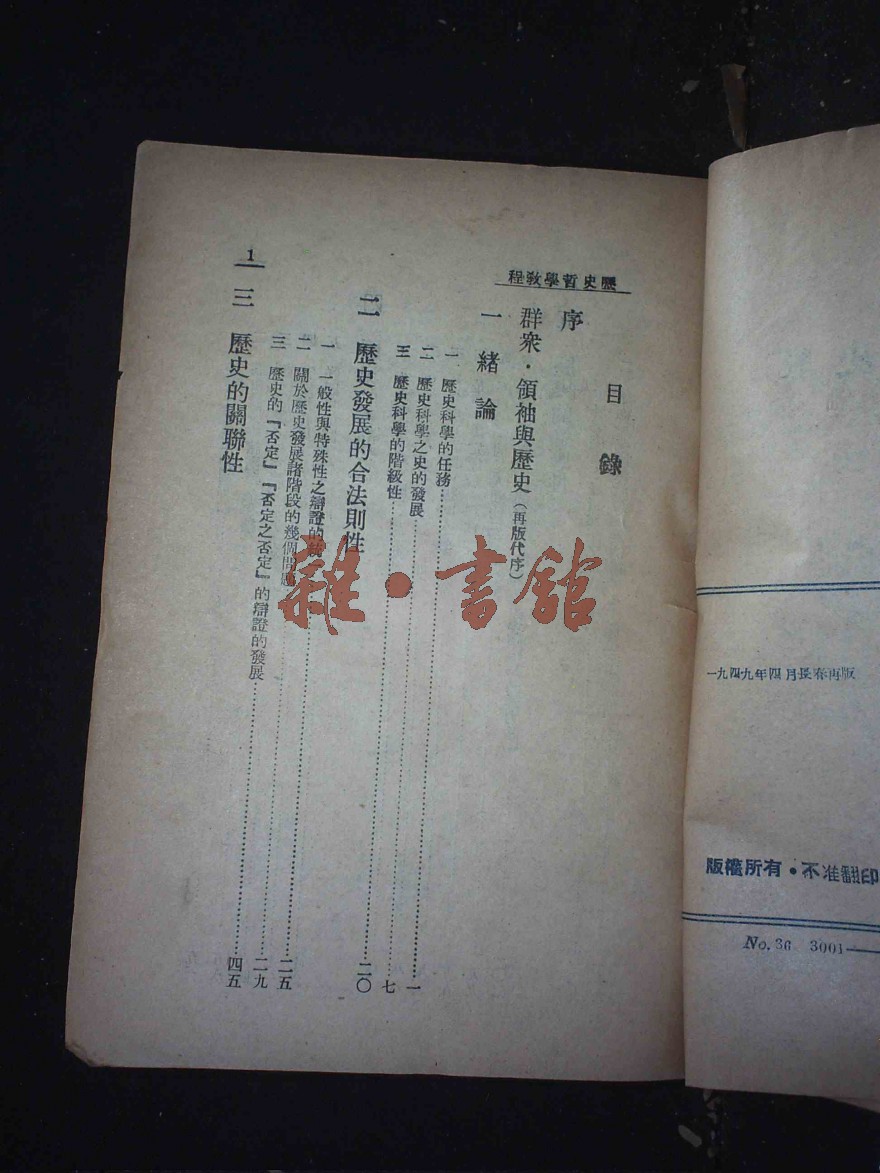 一九四九年四月長春再版
版權所有・不准翻印
No. 36 3001—
歷史哲學教程
目錄
序
群衆・領袖與歷史（再版代序）
一 緒論
一 歷史科學的任務……一
二 歷史科學之史的發展……七
三 歷史科學的階級性……二〇
二 歷史發展的合法則性
一 一般性與特殊性之辯證的……二五
二 關於歷史發展諸階段的幾個問題……二九
三 歷史的『否定』『否定之否定』的辯證的發展……四五
三 歷史的關聯性
1
雜・書館